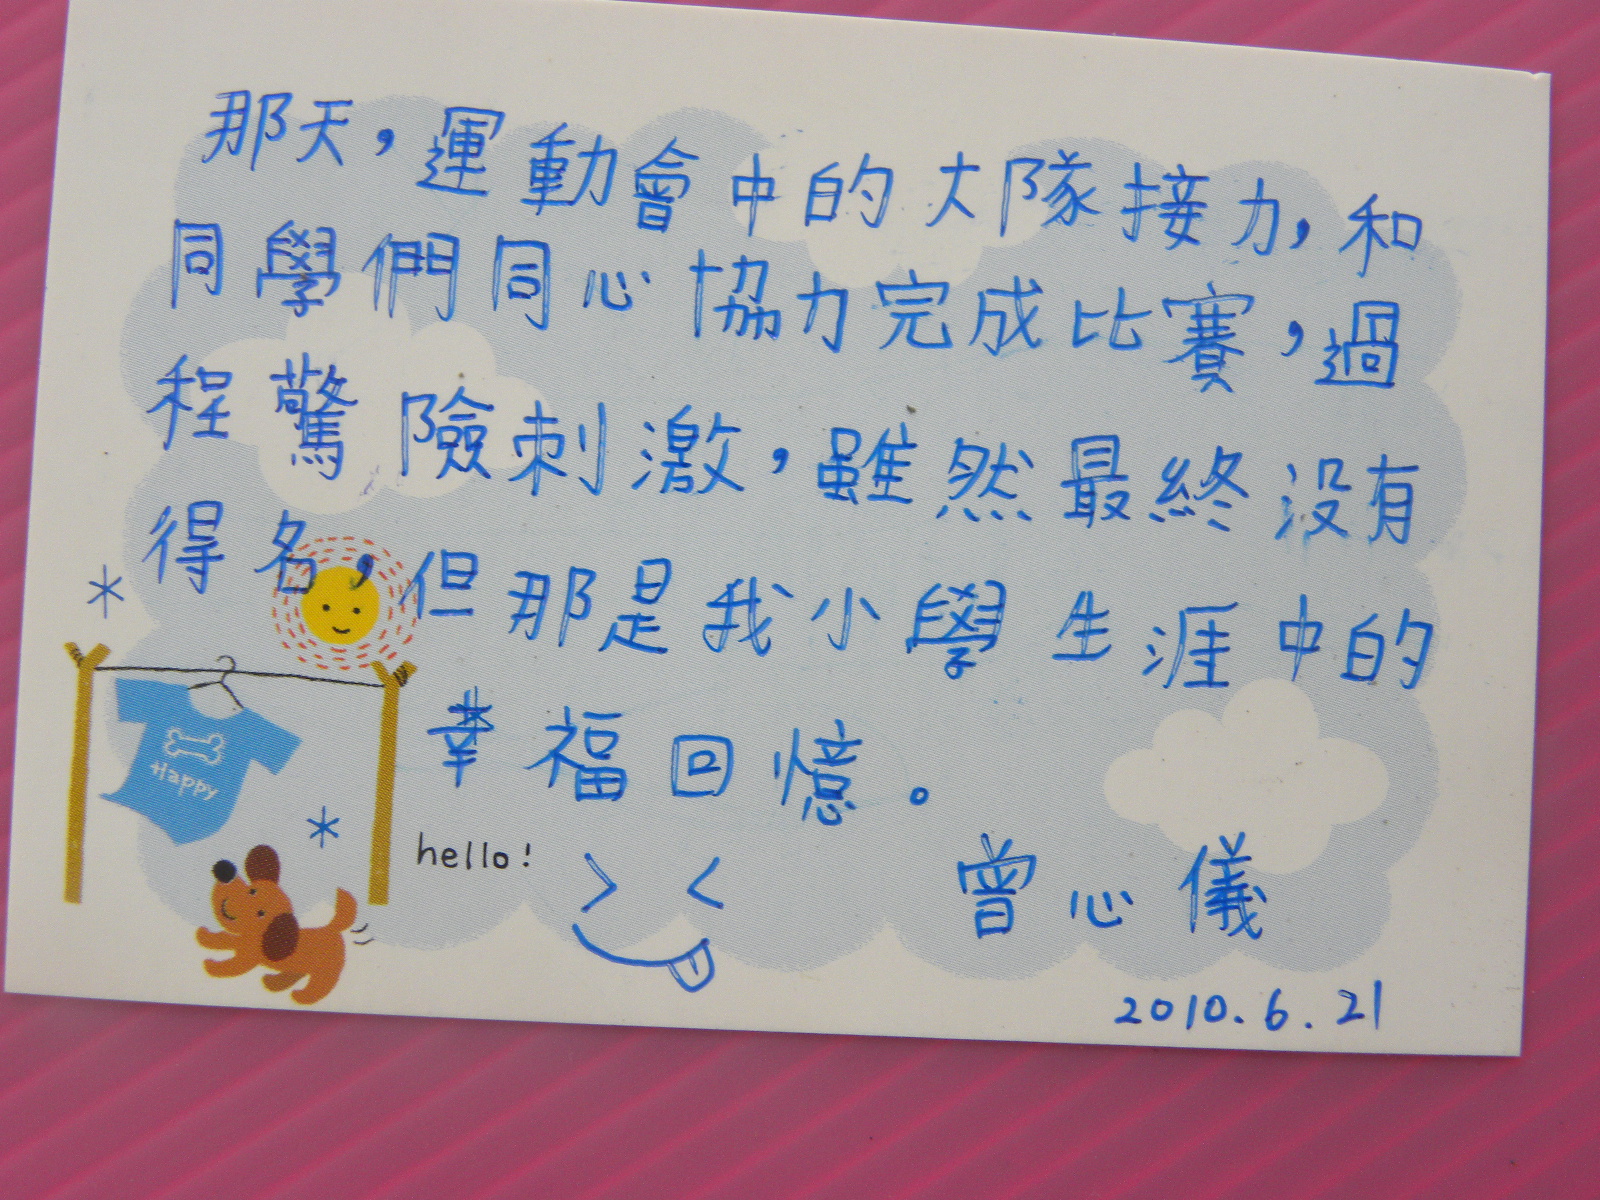 那天，運動會中的大隊接力，和
同學們同心協力完成比賽，過
程驚險刺激，雖然最終没有
得名，但那是我小學生涯中的
幸福回憶。
Happy
hello!
曾心儀
2010.6.21